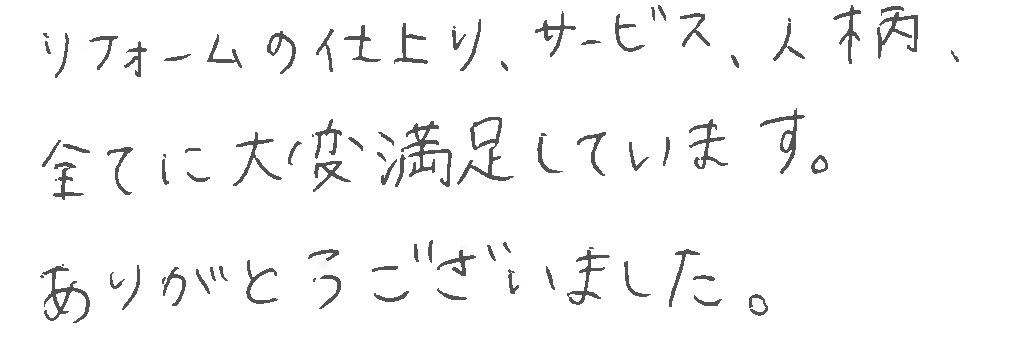 リフォームの仕上り、サービス、人柄、
全てに大変満足しています。
ありがとうございました。